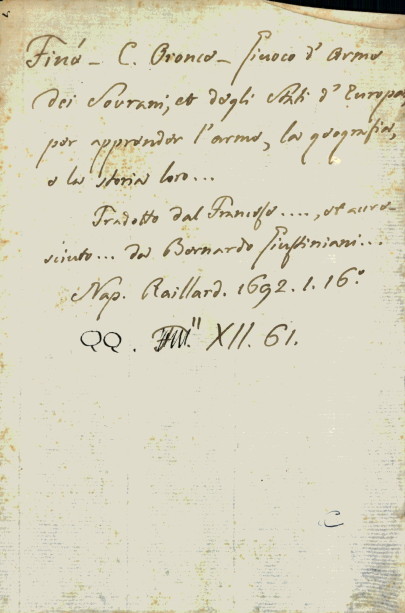 Finé - C. Oronce - Giuoco d'Arme
dei Sovrani, et degli Stati d'Europa,
per apprender l'arme, la geografia,
e la storia loro...
Tradotto dal Francese ...., et accre-
sciuto... da Bernardo Giustiniani...
Nap. Raillard. 1692. 1. 16.º
QQ. XII. 61.
C